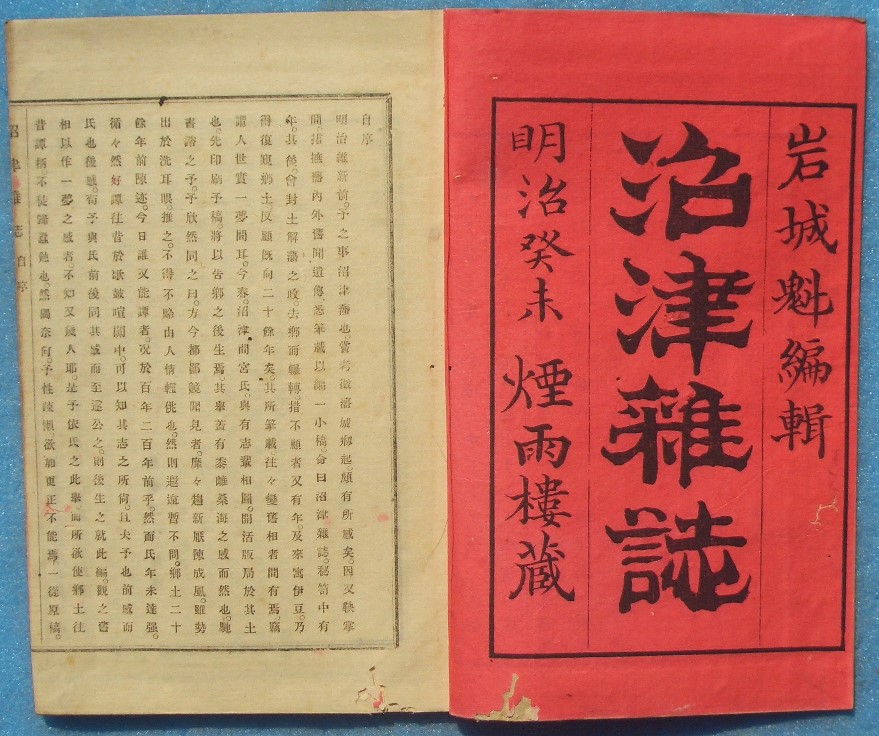 岩城魁編輯
沼津雜誌
明治癸未 煙雨樓藏
自序
明治維新前。予之事沼津藩也。嘗考徵諸城起。頗有所感矣。因又鞅掌
間。摭舊內外舊聞遺傳。悉筆載以編一小稿。命曰沼津雜誌。秘笥中有
年。其後。會封土解藩之政。去鄉而離轉。措不顧者又有年。及來寓伊豆。乃
得復窺鄉土。反顧旣向二十餘年矣。其所筆載往々變舊相者間有焉。竊
謂人世實一夢間耳。今春。沼津間宮氏。與有志輩相圖。開活版局於其土
也。先印刷予稿。將以告鄉之後生焉。其舉蓋有黍離桑海之感而然也。馳
書諮之予。予欣然同之曰。方今都鄙競開見者。靡々趨新厭陳成風。雖勢
出於洗耳。推之。不得不略由人情輕佻也。然則遐遠暫不問。鄉土二十
餘年前陳迹。今日誰又能譚者。况於百年二百年前乎。然而氏年未達強。
循々然好譚往昔於歌皷喧闐中。可以知其志之所尙。且夫予也前感而
氏也後感。苟予與氏前後同其感而至遂公之。則後生之就此編。觀之舊
相以作一夢之感者。不知又幾人耶。是予依氏之此舉。而所欲使鄉土往
昔譚柄。不徒歸蠹蝕也。然獨奈何。予性疎懶欲加更正不能焉。一從原稿。
沼津雜誌 自序